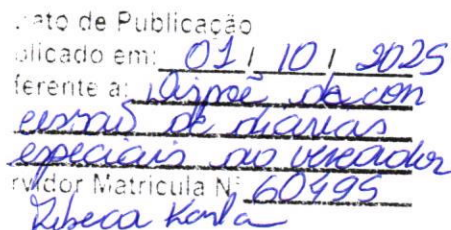 ato de Publicação
plicado em: 01 / 10 / 2025
ferente a: Dispõe da con
cessão de diarias
especiais ao vereador
rvidor Matricula Nº 60495
Rebeca Karla